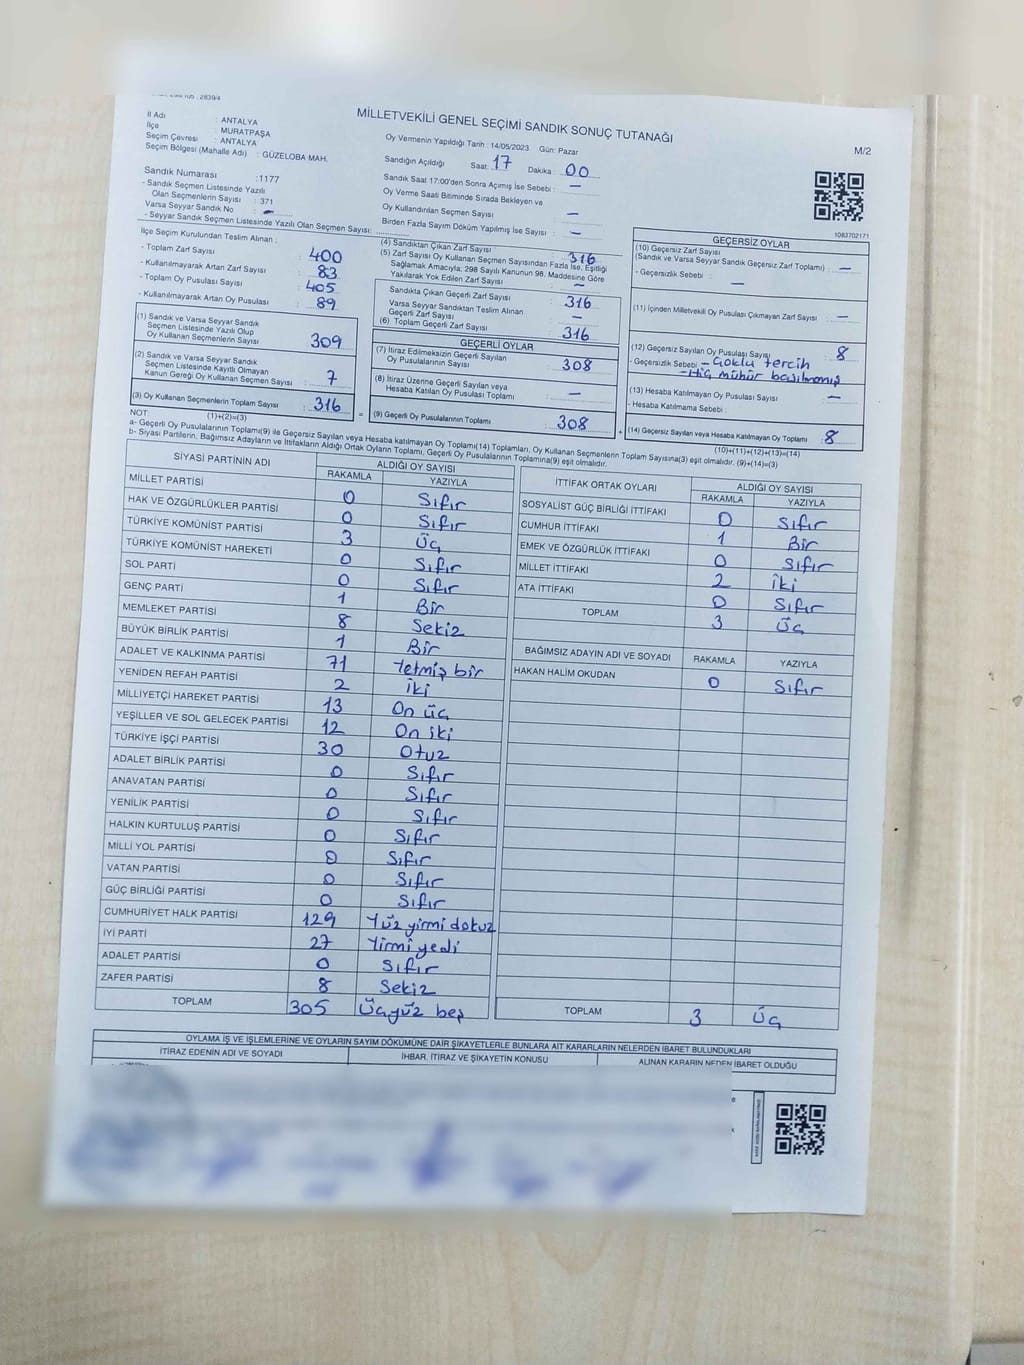 MİLLETVEKİLİ GENEL SEÇİMİ SANDIK SONUÇ TUTANAĞI
M/2
İl Adı : ANTALYA
İlçe : MURATPAŞA
Seçim Çevresi : ANTALYA
Seçim Bölgesi (Mahalle Adı) : GÜZELOBA MAH.
Sandık Numarası : 1177
- Sandık Seçmen Listesinde Yazılı
Olan Seçmenlerin Sayısı : 371
Varsa Seyyar Sandık No : -
- Seyyar Sandık Seçmen Listesinde Yazılı Olan Seçmen Sayısı:
Oy Vermenin Yapıldığı Tarih : 14/05/2023 Gün: Pazar
Sandığın Açıldığı Saat: 17 Dakika : 00
Sandık Saat 17:00'den Sonra Açımış İse Sebebi : -
Oy Verme Saati Bitiminde Sırada Bekleyen ve
Oy Kullandırılan Seçmen Sayısı : -
Birden Fazla Sayım Döküm Yapılmış İse Sayısı : -
1083702171
İlçe Seçim Kurulundan Teslim Alınan :
- Toplam Zarf Sayısı : 400
- Kullanılmayarak Artan Zarf Sayısı : 83
- Toplam Oy Pusulası Sayısı : 405
- Kullanılmayarak Artan Oy Pusulası : 89
(1) Sandık ve Varsa Seyyar Sandık
Seçmen Listesinde Yazılı Olup
Oy Kullanan Seçmenlerin Sayısı : 309
(2) Sandık ve Varsa Seyyar Sandık
Seçmen Listesinde Kayıtlı Olmayan
Kanun Gereği Oy Kullanan Seçmen Sayısı : 7
(3) Oy Kullanan Seçmenlerin Toplam Sayısı : 316
(1)+(2)=(3)
(4) Sandıktan Çıkan Zarf Sayısı : 316
(5) Zarf Sayısı Oy Kullanan Seçmen Sayısından Fazla İse, Eşitliği
Sağlamak Amacıyla; 298 Sayılı Kanunun 98. Maddesine Göre
Yakılarak Yok Edilen Zarf Sayısı : -
Sandıkta Çıkan Geçerli Zarf Sayısı : 316
Varsa Seyyar Sandıktan Teslim Alınan
Geçerli Zarf Sayısı : -
(6) Toplam Geçerli Zarf Sayısı : 316
GEÇERLİ OYLAR
(7) İtiraz Edilmeksizin Geçerli Sayılan
Oy Pusulalarının Sayısı : 308
(8) İtiraz Üzerine Geçerli Sayılan veya
Hesaba Katılan Oy Pusulası Toplamı : -
= (9) Geçerli Oy Pusulalarının Toplamı : 308 +
GEÇERSİZ OYLAR
(10) Geçersiz Zarf Sayısı
(Sandık ve Varsa Seyyar Sandık Geçersiz Zarf Toplamı) : -
- Geçersizlik Sebebi : -
(11) İçinden Milletvekili Oy Pusulası Çıkmayan Zarf Sayısı : -
(12) Geçersiz Sayılan Oy Pusulası Sayısı : 8
- Geçersizlik Sebebi : - Çoklu tercih
- Hiç mühür basılmamış
(13) Hesaba Katılmayan Oy Pusulası Sayısı : -
- Hesaba Katılmama Sebebi :
(14) Geçersiz Sayılan veya Hesaba Katılmayan Oy Toplamı : 8
(10)+(11)+(12)+(13)=(14)
NOT:
a- Geçerli Oy Pusulalarının Toplamı(9) ile Geçersiz Sayılan veya Hesaba katılmayan Oy Toplamı(14) Toplamları, Oy Kullanan Seçmenlerin Toplam Sayısına(3) eşit olmalıdır. (9)+(14)=(3)
b- Siyasi Partilerin, Bağımsız Adayların ve İttifakların Aldığı Ortak Oyların Toplamı, Geçerli Oy Pusulalarının Toplamına(9) eşit olmalıdır.
SİYASİ PARTİNİN ADI ALDIĞI OY SAYISI
RAKAMLA YAZIYLA
MİLLET PARTİSİ 0 Sıfır
HAK VE ÖZGÜRLÜKLER PARTİSİ 0 Sıfır
TÜRKİYE KOMÜNİST PARTİSİ 3 Üç
TÜRKİYE KOMÜNİST HAREKETİ 0 Sıfır
SOL PARTİ 0 Sıfır
GENÇ PARTİ 1 Bir
MEMLEKET PARTİSİ 8 Sekiz
BÜYÜK BİRLİK PARTİSİ 1 Bir
ADALET VE KALKINMA PARTİSİ 71 Yetmiş bir
YENİDEN REFAH PARTİSİ 2 İki
MİLLİYETÇİ HAREKET PARTİSİ 13 On üç
YEŞİLLER VE SOL GELECEK PARTİSİ 12 On iki
TÜRKİYE İŞÇİ PARTİSİ 30 Otuz
ADALET BİRLİK PARTİSİ 0 Sıfır
ANAVATAN PARTİSİ 0 Sıfır
YENİLİK PARTİSİ 0 Sıfır
HALKIN KURTULUŞ PARTİSİ 0 Sıfır
MİLLİ YOL PARTİSİ 0 Sıfır
VATAN PARTİSİ 0 Sıfır
GÜÇ BİRLİĞİ PARTİSİ 0 Sıfır
CUMHURİYET HALK PARTİSİ 129 Yüz yirmi dokuz
İYİ PARTİ 27 Yirmi yedi
ADALET PARTİSİ 0 Sıfır
ZAFER PARTİSİ 8 Sekiz
TOPLAM 305 Üçyüz beş
İTTİFAK ORTAK OYLARI ALDIĞI OY SAYISI
RAKAMLA YAZIYLA
SOSYALİST GÜÇ BİRLİĞİ İTTİFAKI 0 Sıfır
CUMHUR İTTİFAKI 1 Bir
EMEK VE ÖZGÜRLÜK İTTİFAKI 0 Sıfır
MİLLET İTTİFAKI 2 İki
ATA İTTİFAKI 0 Sıfır
TOPLAM 3 Üç
BAĞIMSIZ ADAYIN ADI VE SOYADI RAKAMLA YAZIYLA
HAKAN HALİM OKUDAN 0 Sıfır
TOPLAM 3 Üç
OYLAMA İŞ VE İŞLEMLERİNE VE OYLARIN SAYIM DÖKÜMÜNE DAİR ŞİKAYETLERLE BUNLARA AİT KARARLARIN NELERDEN İBARET BULUNDUKLARI
İTİRAZ EDENİN ADI VE SOYADI İHBAR, İTİRAZ VE ŞİKAYETİN KONUSU ALINAN KARARIN NEDEN İBARET OLDUĞU